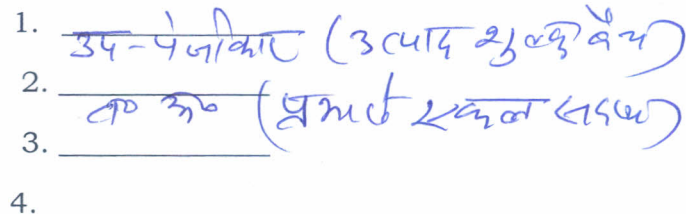 1. उप-पंजीकार (उत्पाद शुल्क बैंच)
2. व० अ० (प्रभारी एकल सदस्य)
3.
4.